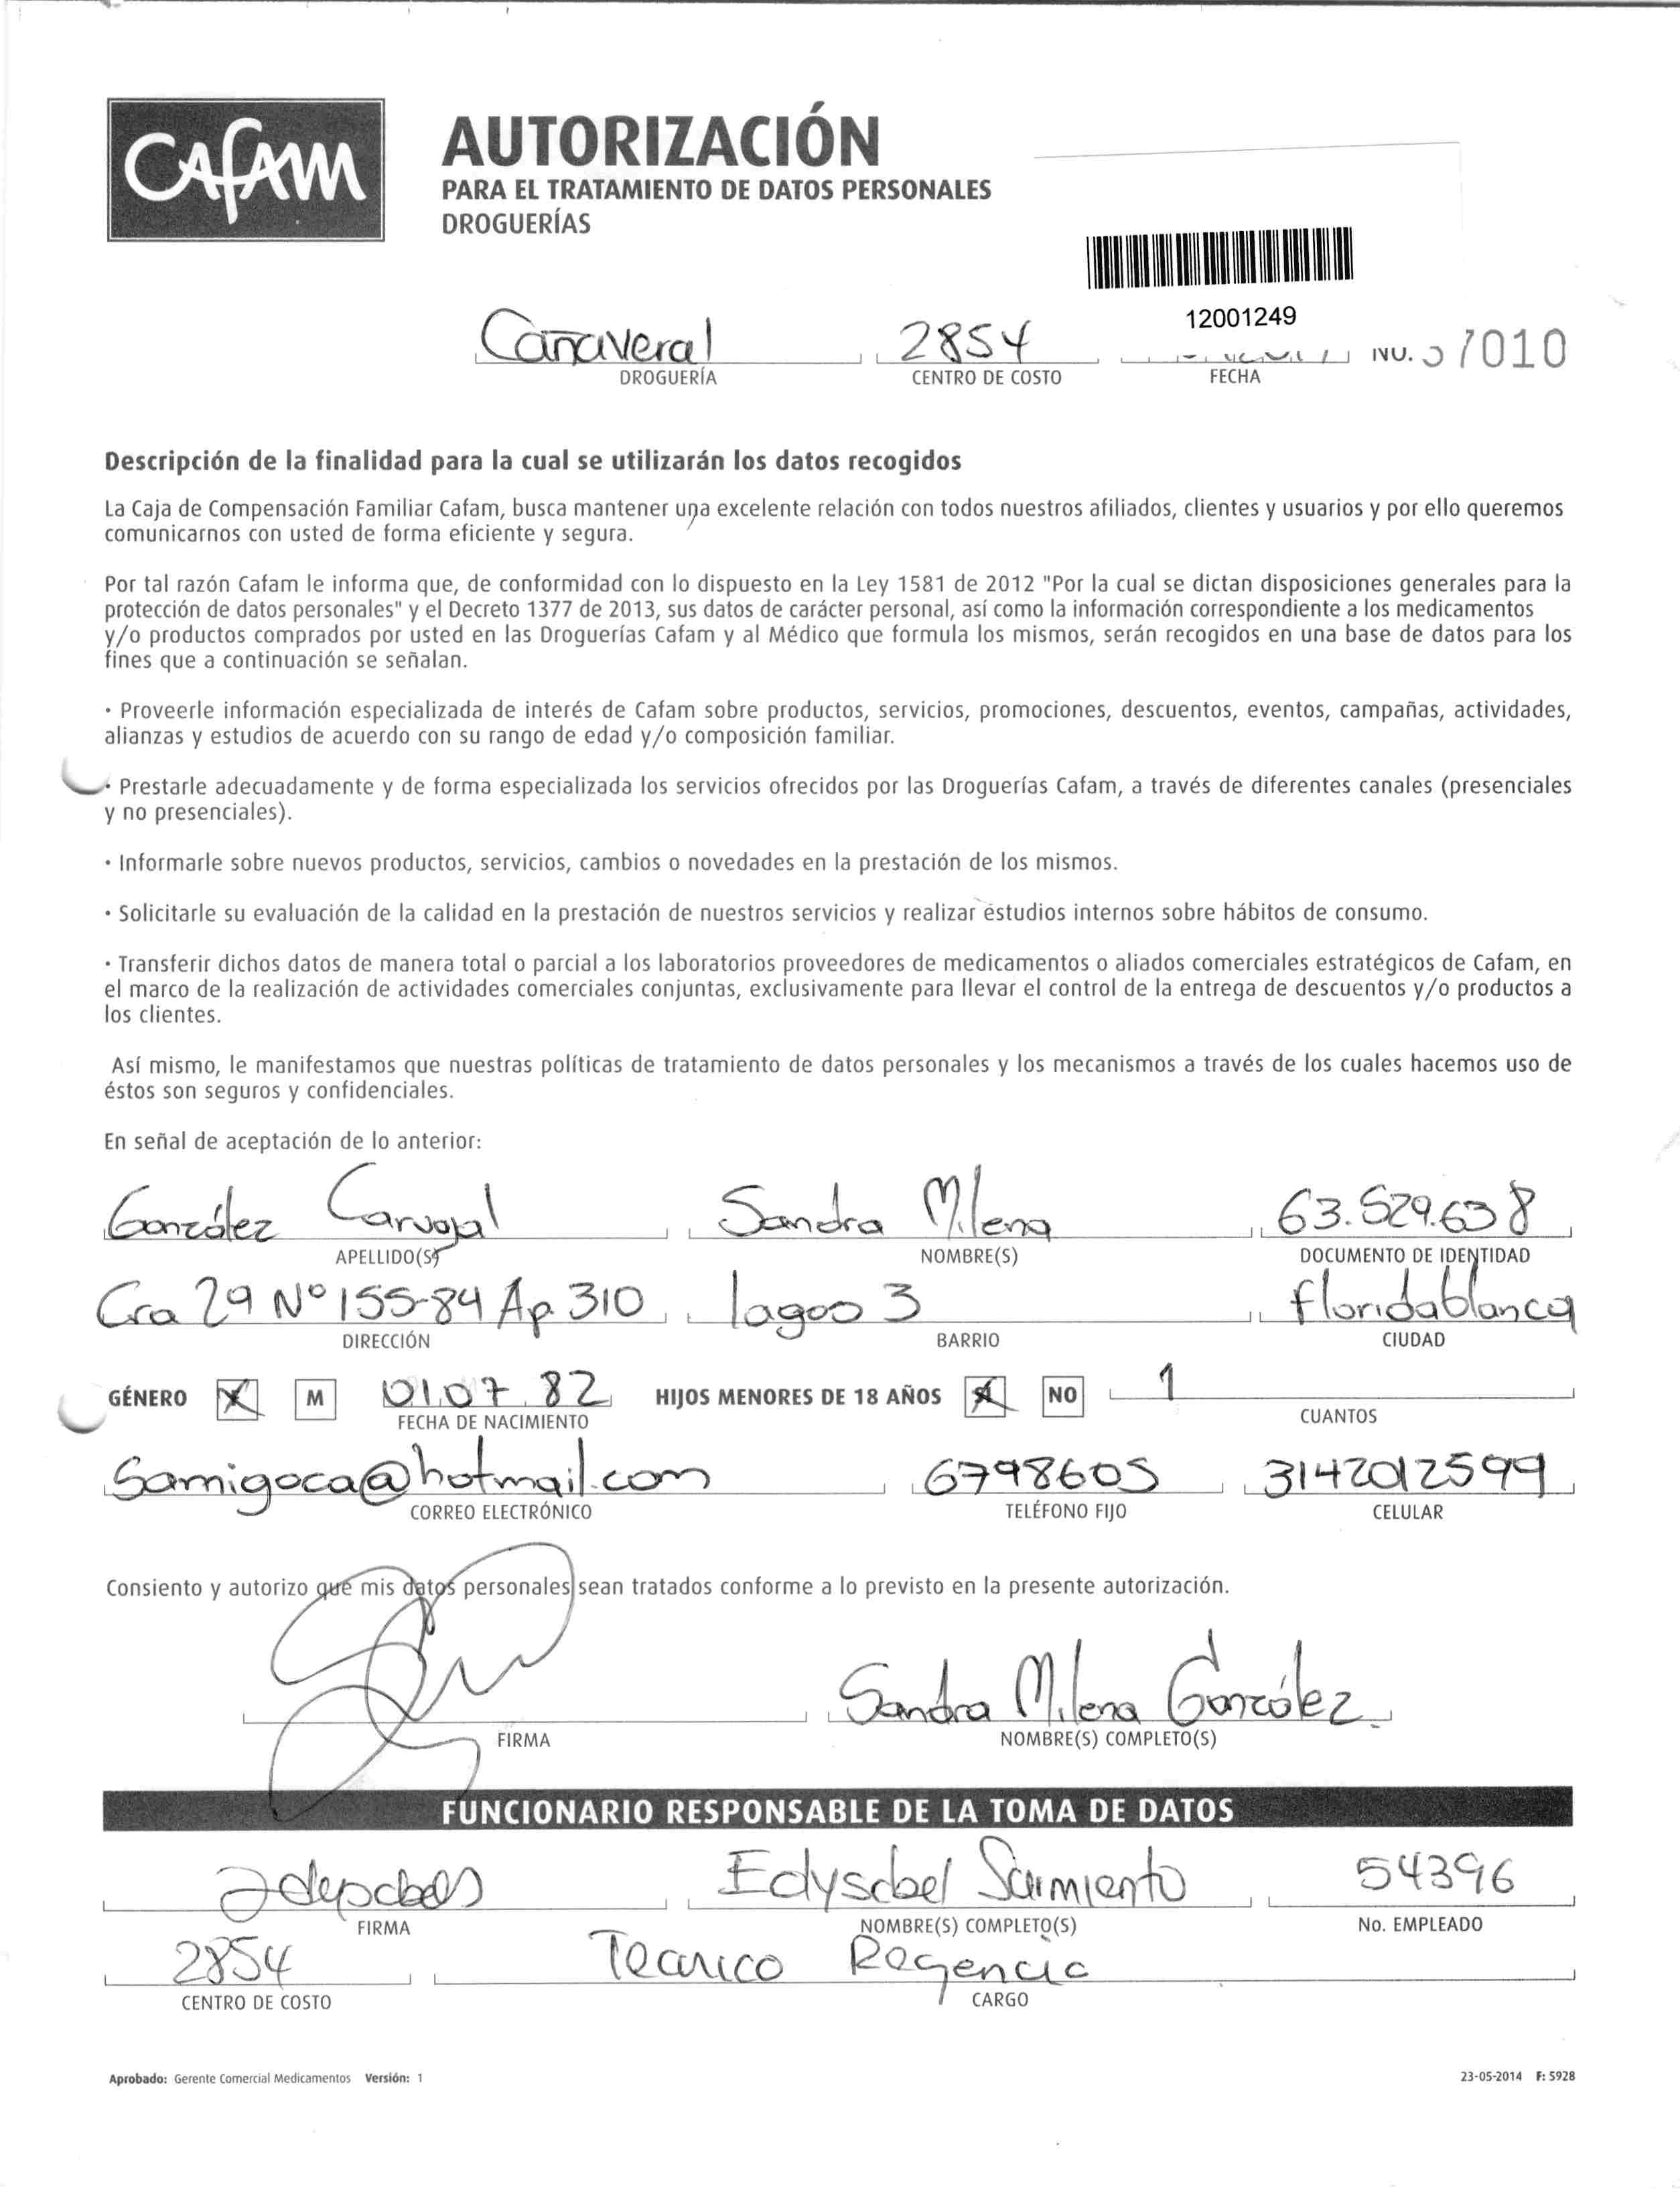 CAFAM
AUTORIZACIÓN
PARA EL TRATAMIENTO DE DATOS PERSONALES
DROGUERÍAS
12001249
Cañaveral 2854 No. 7010
DROGUERÍA CENTRO DE COSTO FECHA
Descripción de la finalidad para la cual se utilizarán los datos recogidos
La Caja de Compensación Familiar Cafam, busca mantener una excelente relación con todos nuestros afiliados, clientes y usuarios y por ello queremos
comunicarnos con usted de forma eficiente y segura.
Por tal razón Cafam le informa que, de conformidad con lo dispuesto en la Ley 1581 de 2012 "Por la cual se dictan disposiciones generales para la
protección de datos personales" y el Decreto 1377 de 2013, sus datos de carácter personal, así como la información correspondiente a los medicamentos
y/o productos comprados por usted en las Droguerías Cafam y al Médico que formula los mismos, serán recogidos en una base de datos para los
fines que a continuación se señalan.
· Proveerle información especializada de interés de Cafam sobre productos, servicios, promociones, descuentos, eventos, campañas, actividades,
alianzas y estudios de acuerdo con su rango de edad y/o composición familiar.
· Prestarle adecuadamente y de forma especializada los servicios ofrecidos por las Droguerías Cafam, a través de diferentes canales (presenciales
y no presenciales).
· Informarle sobre nuevos productos, servicios, cambios o novedades en la prestación de los mismos.
· Solicitarle su evaluación de la calidad en la prestación de nuestros servicios y realizar estudios internos sobre hábitos de consumo.
· Transferir dichos datos de manera total o parcial a los laboratorios proveedores de medicamentos o aliados comerciales estratégicos de Cafam, en
el marco de la realización de actividades comerciales conjuntas, exclusivamente para llevar el control de la entrega de descuentos y/o productos a
los clientes.
Así mismo, le manifestamos que nuestras políticas de tratamiento de datos personales y los mecanismos a través de los cuales hacemos uso de
éstos son seguros y confidenciales.
En señal de aceptación de lo anterior:
González Carvajal Sandra Milena 63.529.638
APELLIDO(S) NOMBRE(S) DOCUMENTO DE IDENTIDAD
Cra 29 Nº 155-84 Ap. 310 lagos 3 floridablanca
DIRECCIÓN BARRIO CIUDAD
GÉNERO X M 01.07.82 HIJOS MENORES DE 18 AÑOS X NO 1
FECHA DE NACIMIENTO CUANTOS
Samigoca@hotmail.com 6798605 3142012599
CORREO ELECTRÓNICO TELÉFONO FIJO CELULAR
Consiento y autorizo que mis datos personales sean tratados conforme a lo previsto en la presente autorización.
Sandra Milena González
FIRMA NOMBRE(S) COMPLETO(S)
FUNCIONARIO RESPONSABLE DE LA TOMA DE DATOS
Edysabel Sarmiento 54396
FIRMA NOMBRE(S) COMPLETO(S) No. EMPLEADO
2854 Tecnico Regencia
CENTRO DE COSTO CARGO
Aprobado: Gerente Comercial Medicamentos Versión: 1 23-05-2014 F: 5928